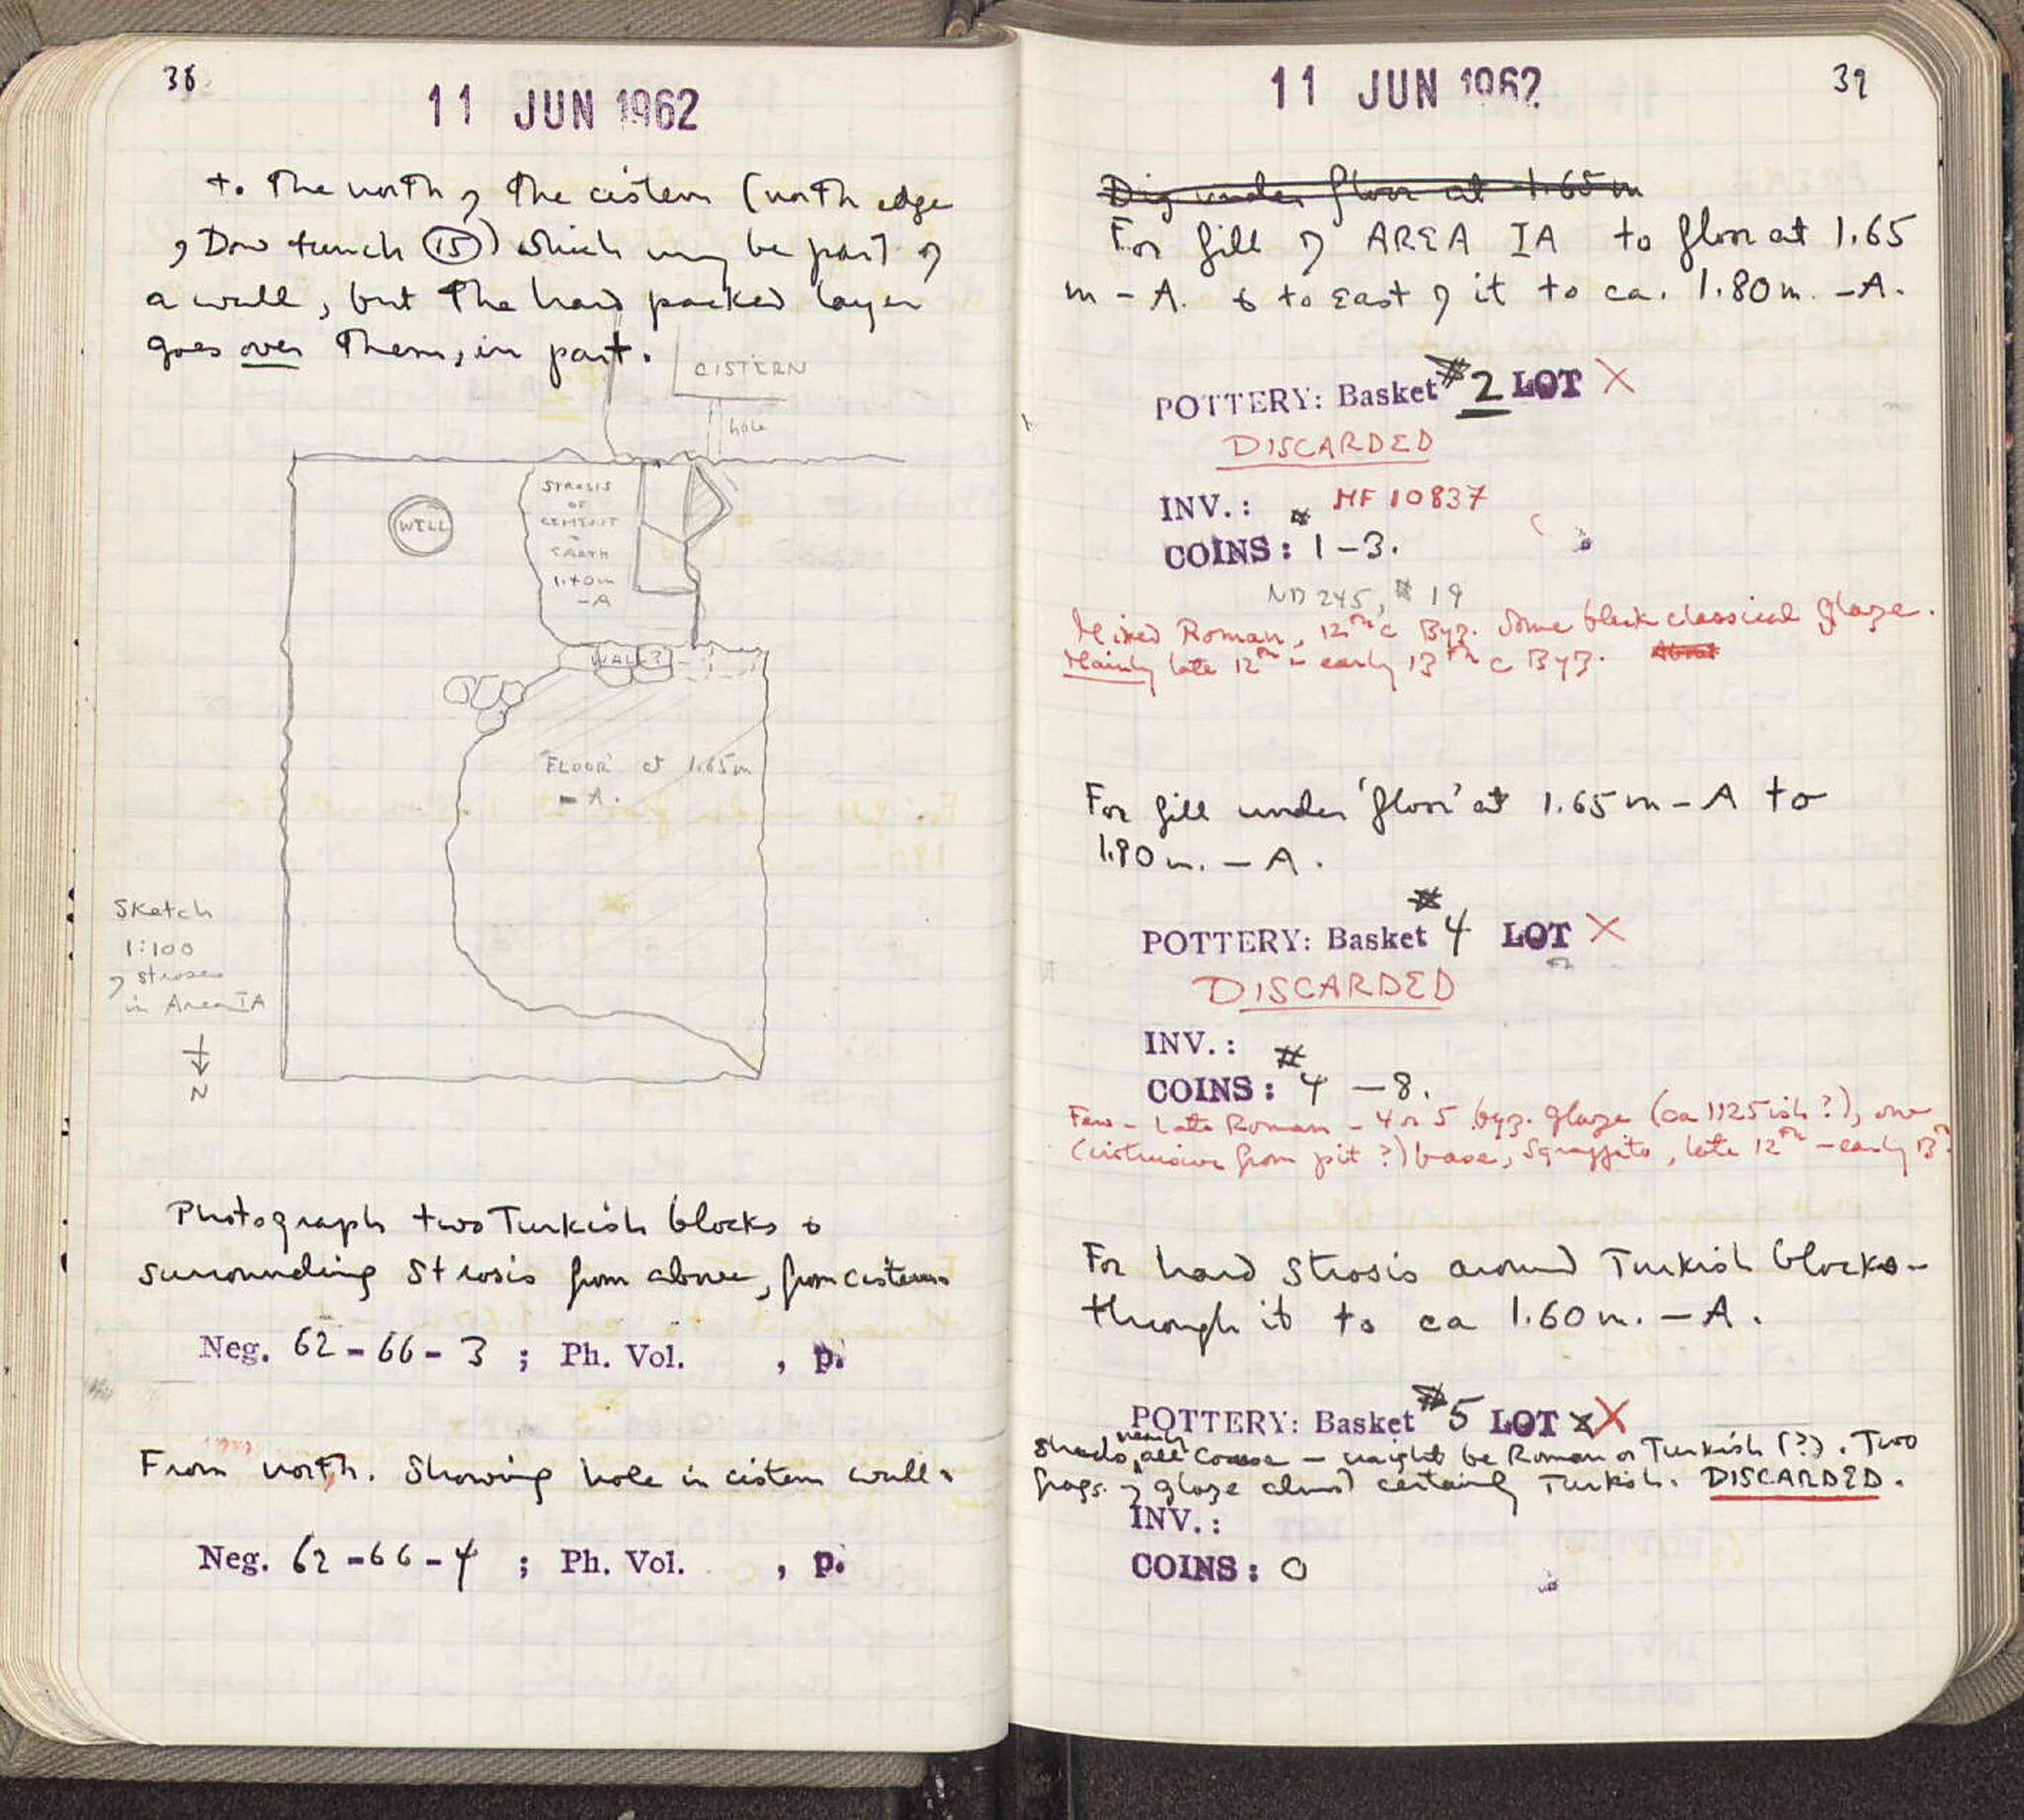 38
11 JUN 1962
to the north of the cistern (north edge
of Dow trench (15)) which may be part of
a wall, but the hard packed layer
goes over them, in part.
CISTERN
hole
WELL
STROSIS
OF
CEMENT
EARTH
1.40m
-A
WALL?
"FLOOR" at 1.65m
- A.
Sketch
1:100
of stroses
in Area IA
N
Photograph two Turkish blocks &
surrounding strosis from above, from cistern.
Neg. 62-66-3 ; Ph. Vol. , p.
From north. Showing hole in cistern wall.
Neg. 62-66-4 ; Ph. Vol. , p.
11 JUN 1962
39
Dig under floor at 1.65m
For fill of AREA IA to floor at 1.65
m - A. & to east of it to ca. 1.80m. -A.
POTTERY: Basket #2 LOT X
DISCARDED
INV.: MF 10837
COINS: 1-3.
NB 245, #19
Mixed Roman, 12th c Byz. Some black classical glaze.
Mainly late 12th - early 13th c Byz.
For fill under 'floor' at 1.65m - A to
1.80m. - A.
POTTERY: Basket #4 LOT X
DISCARDED
INV.:
COINS: #4 - 8.
Few - Late Roman - 4 or 5 byz. glaze (ca 1125ish?), one
(intrusive from pit?) base, Sgraffito, late 12th - early 13th
For hard strosis around Turkish blocks -
through it to ca 1.60m. - A.
POTTERY: Basket #5 LOT X X
Sherds, nearly all coarse - might be Roman or Turkish (?). Two
frags. of glaze almost certainly Turkish. DISCARDED.
INV.:
COINS: 0